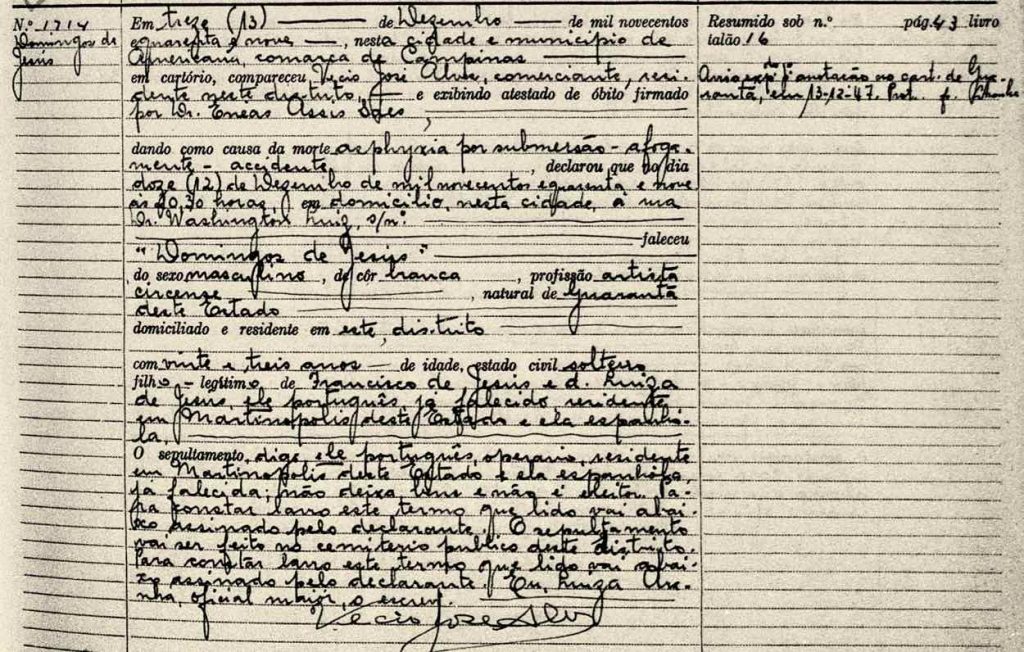 N.º 1714
Domingos de
Jesús
Em treze (13) de Dezembro de mil novecentos
e quarenta e nove, nesta cidade e município de
Americana, comarca de Campinas
em cartório, compareceu Vecio José Alves, comerciante, resi-
dente neste distrito, e exibindo atestado de óbito firmado
por Dr. Eneas Assis
dando como causa da morte asphyxia por submersão - afoga-
mente - accidente, declarou que no dia
doze (12) de Dezembro de mil novecentos e quarenta e nove
ás 20,30 horas, em domicilio, nesta cidade, á rua
Dr. Washington Luiz, s/nº
faleceu
"Domingos de Jesús"
do sexo masculino, de côr branca, profissão artista
circense, natural de Guarantã
deste Estado
domiciliado e residente em este, distrito
com vinte e tres anos de idade, estado civil solteiro
filho - legítimo, de Francisco de Jesús e d. Luiza
de Jesús, ele português já falecido residente
em Martinopolis deste Estado e ela espanhó-
la,
O sepultamento, digo ele português, operario, residente
em Martinopolis deste Estado e ela espanhóla,
já falecida; não deixa bens e não é eleitor. Pa-
ra constar lavro este termo que lido vai abai-
xo assinado pelo declarante. O sepultamento
vai ser feito no cemiterio publico deste distrito.
Para constar lavro este termo que lido vai abai-
xo assinado pelo declarante. Eu, Luiza
oficial maior, o escrevi.
Vecio José Alves
Resumido sob n.º pág. 43 livro
talão 16
anotação no cart. de Gua-
rantã, em 13-12-47. Prot.